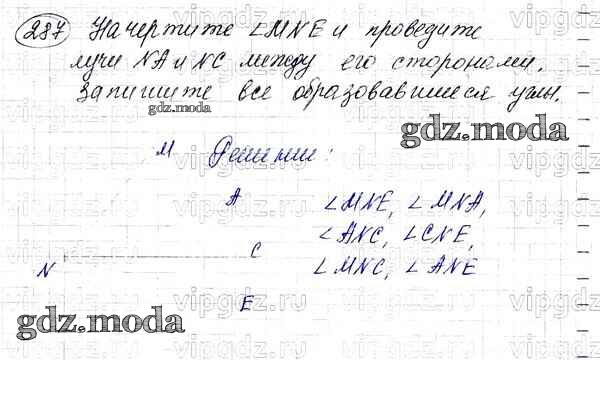 287 Начертите ∠MNE и проведите
лучи NA и NC между его сторонами.
Запишите все образовавшиеся углы.
gdz.moda
gdz.moda
M Решение:
A ∠MNE, ∠MNA,
∠ANC, ∠CNE,
C
N ∠MNC, ∠ANE
E
gdz.moda
vipgdz.ru